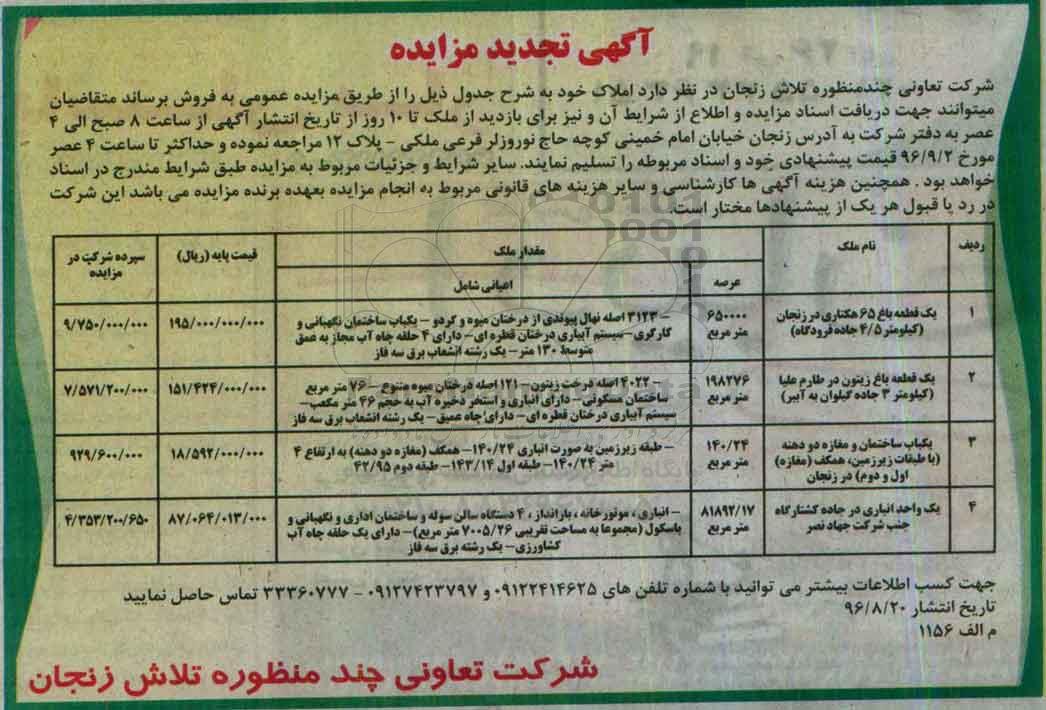 آگهی تجدید مزایده
شرکت تعاونی چندمنظوره تلاش زنجان در نظر دارد املاک خود به شرح جدول ذیل را از طریق مزایده عمومی به فروش برساند متقاضیان
میتوانند جهت دریافت اسناد مزایده و اطلاع از شرایط آن و نیز برای بازدید از ملک تا ۱۰ روز از تاریخ انتشار آگهی از ساعت ۸ صبح الی ۴
عصر به دفتر شرکت به آدرس زنجان خیابان امام خمینی کوچه حاج نوروزلر فرعی ملکی - پلاک ۱۲ مراجعه نموده و حداکثر تا ساعت ۴ عصر
مورخ ۹۶/۹/۲ قیمت پیشنهادی خود و اسناد مربوطه را تسلیم نمایند. سایر شرایط و جزئیات مربوط به مزایده طبق شرایط مندرج در اسناد
خواهد بود . همچنین هزینه آگهی ها کارشناسی و سایر هزینه های قانونی مربوط به انجام مزایده بعهده برنده مزایده می باشد این شرکت
در رد یا قبول هر یک از پیشنهادها مختار است.
ردیف نام ملک مقدار ملک قیمت پایه (ریال) سپرده شرکت در
مزایده
عرصه اعیانی شامل
۱ یک قطعه باغ ۶۵ هکتاری در زنجان ۶۵۰۰۰۰ - ۳۱۲۳ اصله نهال پیوندی از درختان میوه و گردو - یکباب ساختمان نگهبانی و ۱۹۵/۰۰۰/۰۰۰/۰۰۰ ۹/۷۵۰/۰۰۰/۰۰۰
(کیلومتر ۴/۵ جاده فرودگاه) متر مربع کارگری- سیستم آبیاری درختان قطره ای- دارای ۴ حلقه چاه آب مجاز به عمق
متوسط ۱۳۰ متر- یک رشته انشعاب برق سه فاز
۲ یک قطعه باغ زیتون در طارم علیا ۱۹۸۲۷۶ - ۴۰۲۲ اصله درخت زیتون - ۱۲۱ اصله درختان میوه متنوع - ۷۶ متر مربع ۱۵۱/۴۲۴/۰۰۰/۰۰۰ ۷/۵۷۱/۲۰۰/۰۰۰
(کیلومتر ۳ جاده گیلوان به آببر) متر مربع ساختمان مسکونی - دارای انباری و استخر ذخیره آب به حجم ۴۶ متر مکعب-
سیستم آبیاری درختان قطره ای- دارای چاه عمیق- یک رشته انشعاب برق سه فاز
۳ یکباب ساختمان و مغازه دو دهنه ۱۴۰/۲۴ - طبقه زیرزمین به صورت انباری ۱۴۰/۲۴- همکف (مغازه دو دهنه) به ارتفاع ۴ ۱۸/۵۹۲/۰۰۰/۰۰۰ ۹۲۹/۶۰۰/۰۰۰
(با طبقات زیرزمین، همکف (مغازه) متر مربع متر ۱۴۰/۲۴- طبقه اول ۱۴۳/۱۴- طبقه دوم ۴۲/۹۵
اول و دوم) در زنجان
۴ یک واحد انباری در جاده کشتارگاه ۸۱۸۹۲/۱۷ - انباری ، موتورخانه ، بارانداز ، ۴ دستگاه سالن سوله و ساختمان اداری و نگهبانی و ۸۷/۰۶۴/۰۱۳/۰۰۰ ۴/۳۵۳/۲۰۰/۶۵۰
جنب شرکت جهاد نصر متر مربع باسکول (مجموعا به مساحت تقریبی ۷۰۰۵/۲۶ متر مربع)- دارای یک حلقه چاه آب
کشاورزی- یک رشته برق سه فاز
جهت کسب اطلاعات بیشتر می توانید با شماره تلفن های ۰۹۱۲۲۴۱۴۶۲۵ و ۰۹۱۲۷۴۲۳۷۹۷ - ۳۳۳۶۰۷۷۷ تماس حاصل نمایید
تاریخ انتشار ۹۶/۸/۲۰
م الف ۱۱۵۶
شرکت تعاونی چند منظوره تلاش زنجان